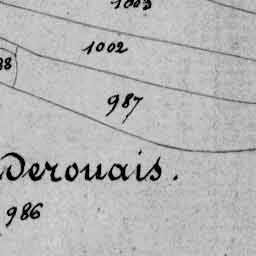 1003
1002
38
987
Derouais.
986